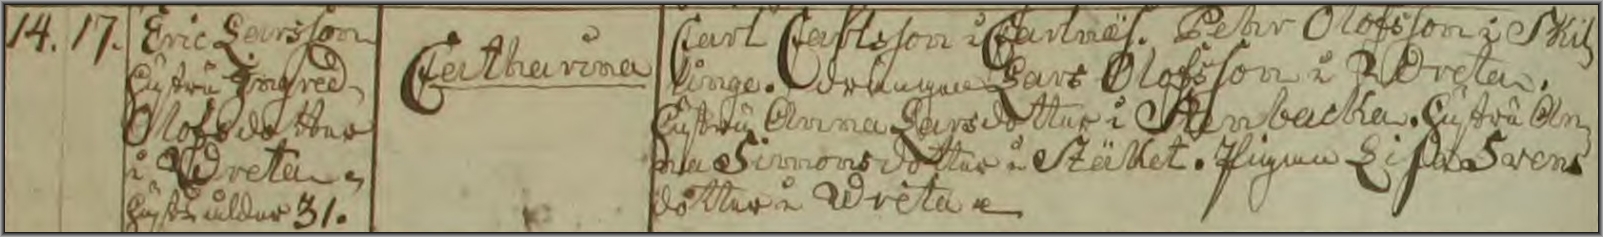 14. 17. Eric Larsson
Hustru Ingred
Olofsdotter
i Wreta.
Hustr: ålder 31.
Catharina
Carl Carlsson i Carlnäs. Pehr Olofsson i Skil
linge. drängen Lars Olofsson i Wreta.
Hustru Anna Larsdotter i Stenbacka. Hustru An
na Simmonsdotter i Stäket. Pigan Lisa Svens
dotter i Wreta